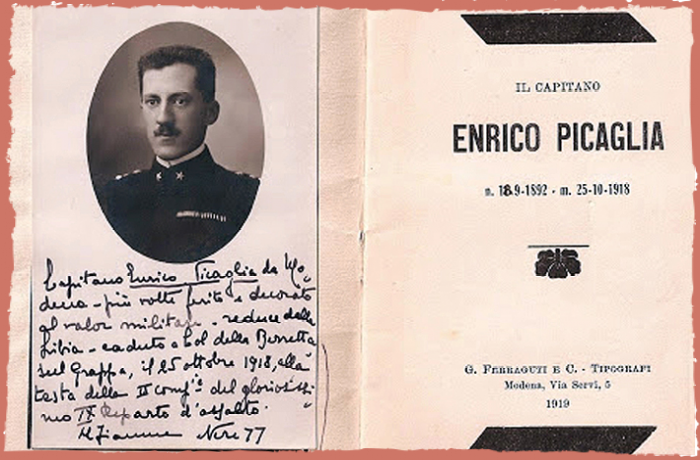 Capitano Enrico Picaglia da Mo-
dena - più volte ferito e decorato
al valor militare - reduce dalla
Libia - caduto a Col della Berretta
sul Grappa, il 25 ottobre 1918, alla
testa della II comp. del gloriosissi-
mo IX Reparto d'assalto.
IL CAPITANO
ENRICO PICAGLIA
n. 18-9-1892 - m. 25-10-1918
G. FERRAGUTI E C. - TIPOGRAFI
Modena, Via Servi, 5
1919